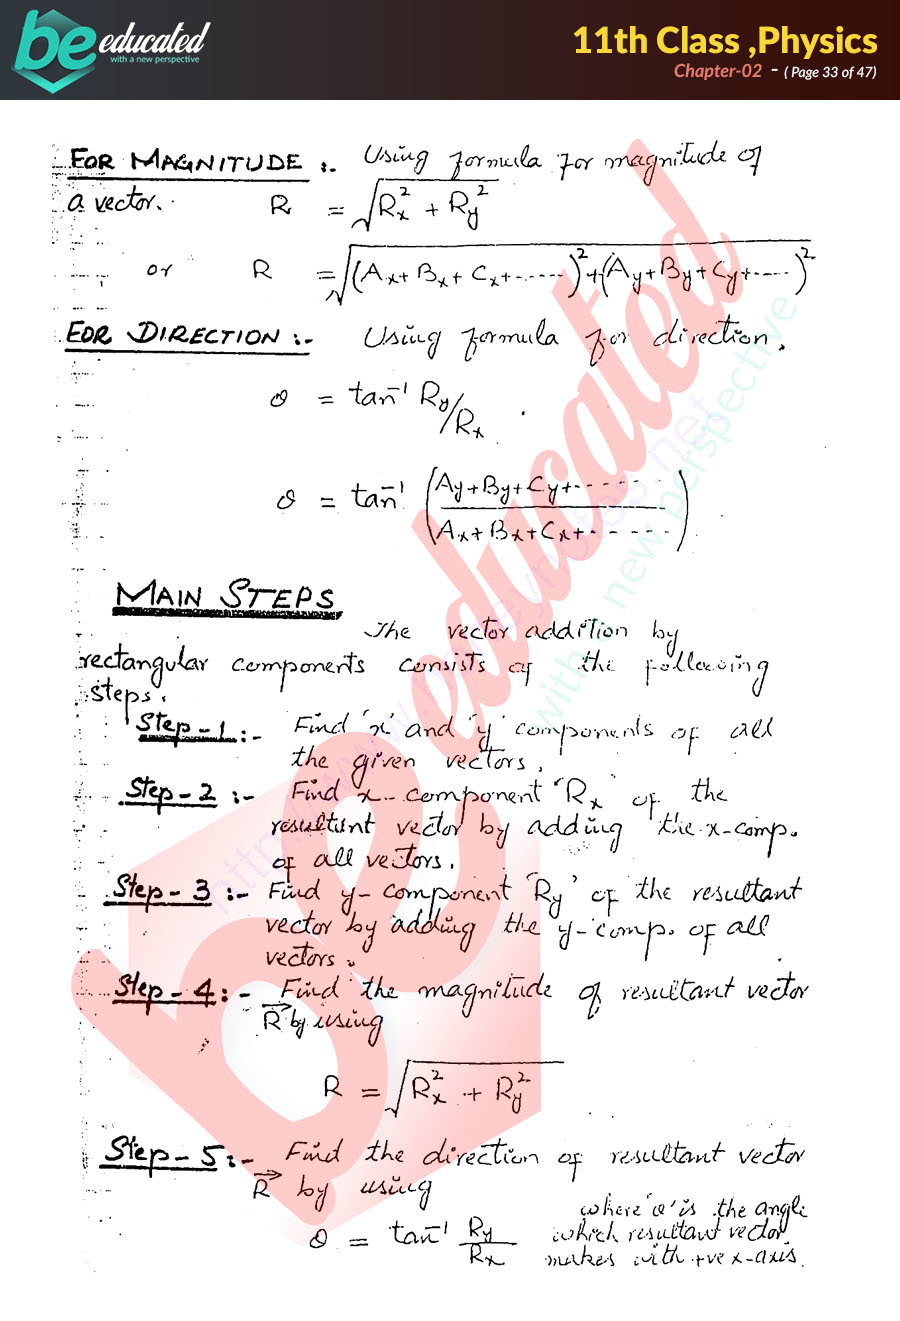 be educated
with a new perspective
11th Class ,Physics
Chapter-02 - ( Page 33 of 47)
FOR MAGNITUDE :- Using formula for magnitude of
a vector. R = √(Rx² + Ry²)
or R = √((Ax + Bx + Cx + ......)² + (Ay + By + Cy + ....)²)
FOR DIRECTION :- Using formula for direction.
θ = tan⁻¹ Ry/Rx
θ = tan⁻¹ ((Ay + By + Cy + ......)/(Ax + Bx + Cx + ......))
MAIN STEPS
The vector addition by
rectangular components consists of the following
steps.
Step-1 :- Find 'x' and 'y' components of all
the given vectors.
Step-2 :- Find x-component 'Rx' of the
resultant vector by adding the x-comp.
of all vectors.
Step-3 :- Find y-component 'Ry' of the resultant
vector by adding the y-comp. of all
vectors.
Step-4 :- Find the magnitude of resultant vector
R⃗ by using
R = √(Rx² + Ry²)
Step-5 :- Find the direction of resultant vector
R⃗ by using
θ = tan⁻¹ Ry/Rx
where 'θ' is the angle
which resultant vector
makes with +ve x-axis.
be educated
with a new perspective